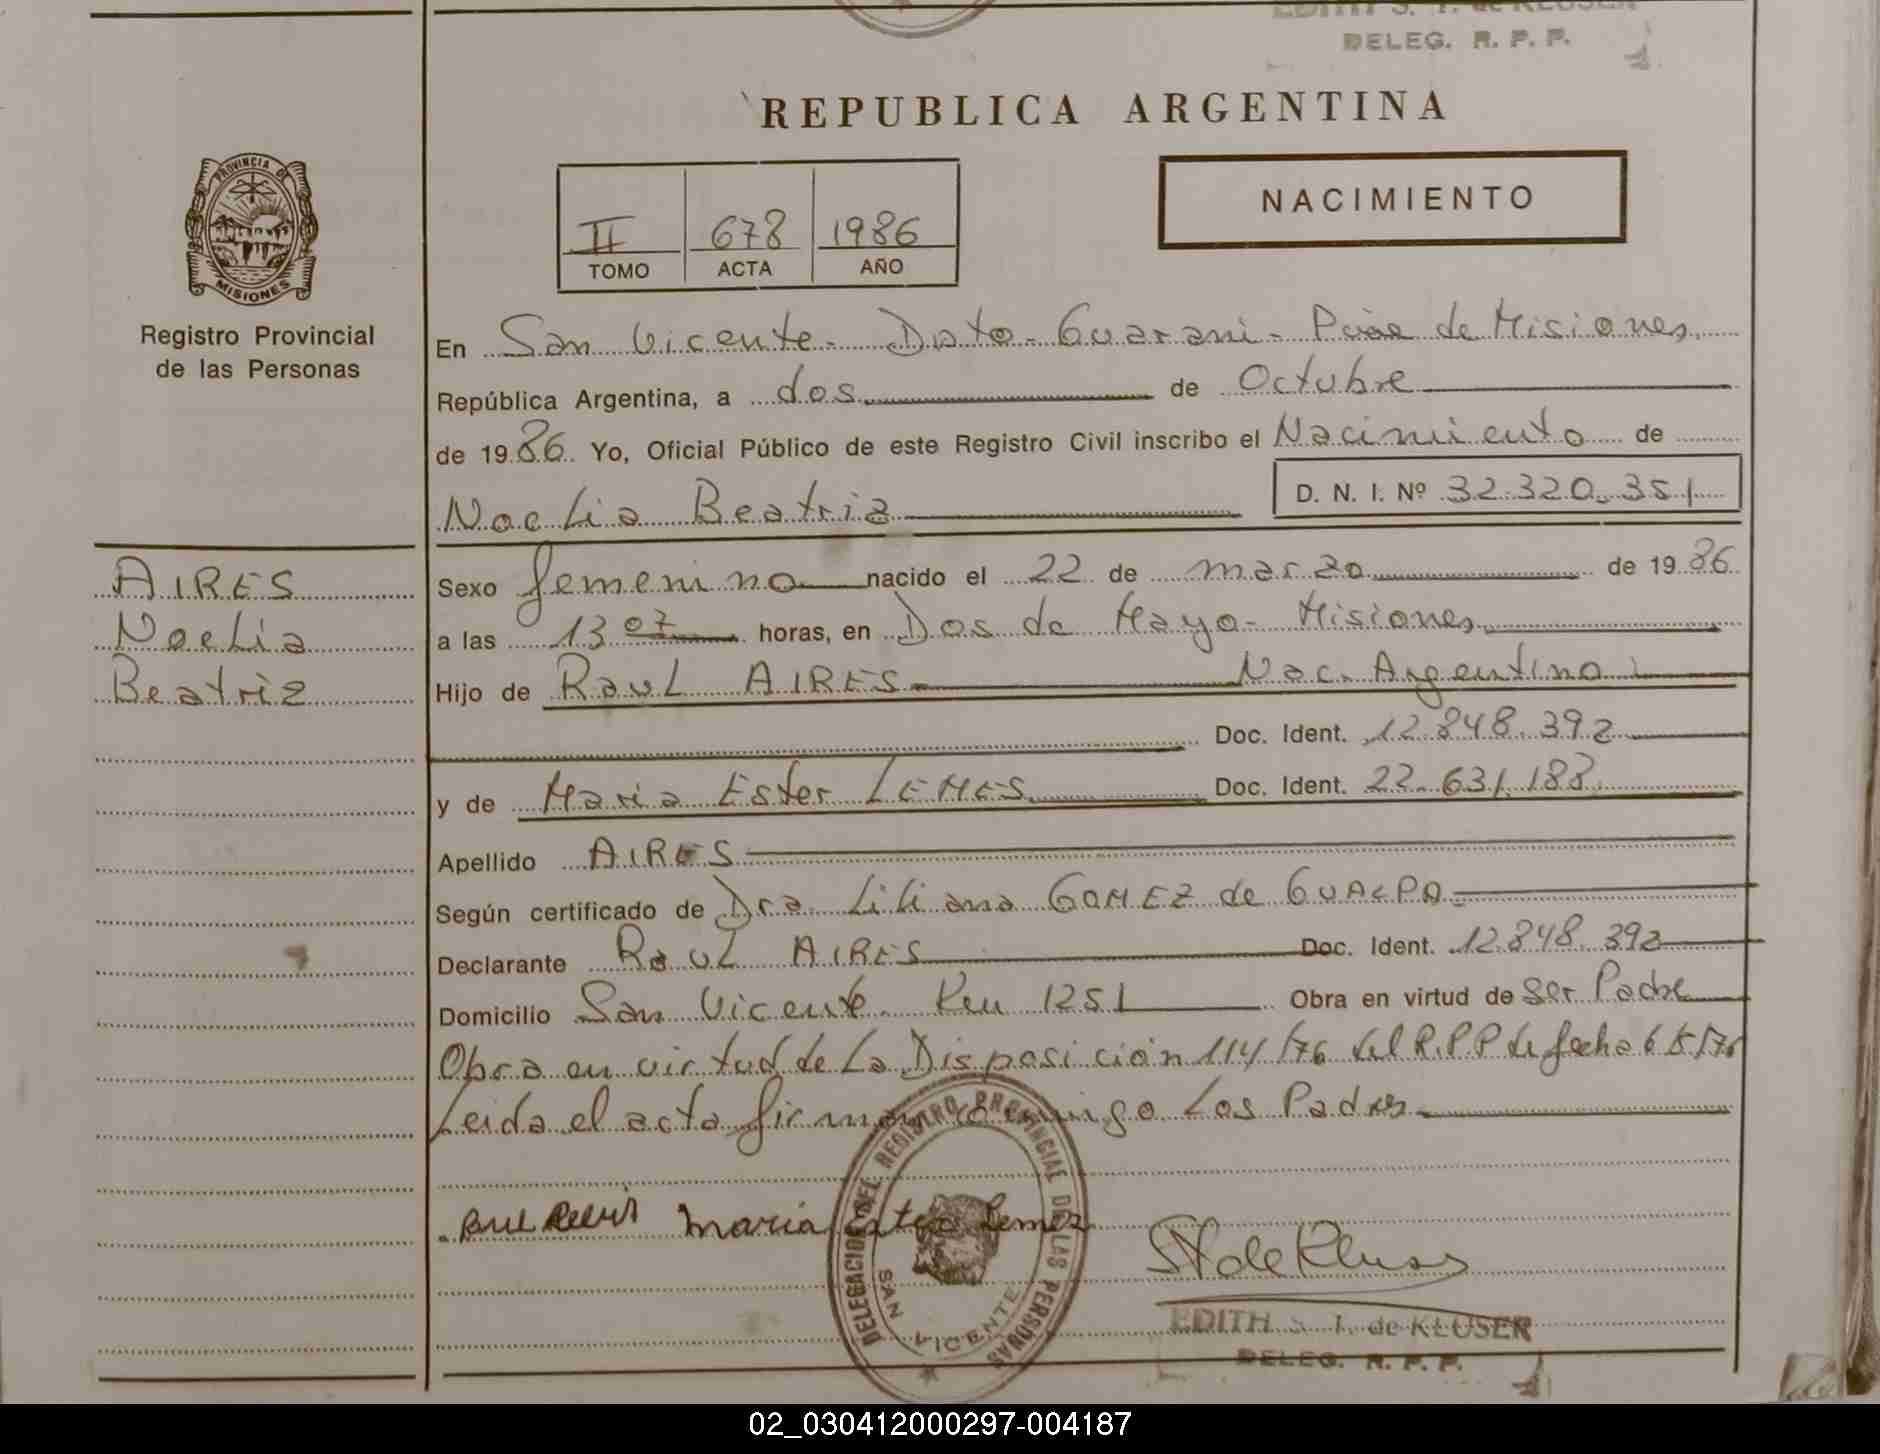 EDITH S. T. de KLUSER
DELEG. R. P. P.
REPUBLICA ARGENTINA
PROVINCIA DE
MISIONES
Registro Provincial
de las Personas
II 678 1986
TOMO ACTA AÑO
NACIMIENTO
En San Vicente - Dpto - Guarani - Pcia de Misiones
República Argentina, a dos de Octubre
de 1986 Yo, Oficial Público de este Registro Civil inscribo el Nacimiento de
Noelia Beatriz
D. N. I. Nº 32.320.351
AIRES
Noelia
Beatriz
Sexo femenino nacido el 22 de marzo de 1986
a las 13 07 horas, en Dos de Mayo - Misiones
Hijo de Raul AIRES Nac. Argentina
Doc. Ident. 12.848.392
y de Maria Ester LEMES Doc. Ident. 22.631.188
Apellido AIRES
Según certificado de Dra. Liliana GOMEZ de GUALPA
Declarante Raul AIRES Doc. Ident. 12.848.392
Domicilio San Vicente - Km 1251 Obra en virtud de ser Padre
Obra en virtud de La Disposición 114/76 del R.P.P de fecha 6/5/76
Leida el acta firman conmigo Los Padres
Maria Ester Lemez
DELEGACION DEL REGISTRO PROVINCIAL DE LAS PERSONAS
SAN VICENTE
EDITH S. T. de KLUSER
DELEG. R. P. P.
02_030412000297-004187